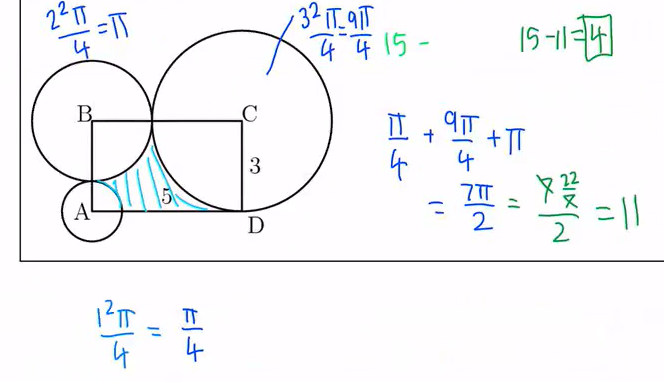 2²π/4 = π
3²π/4 = 9π/4
15 -
15 - 11 = 4
B
C
π/4 + 9π/4 + π
3
5
= 7π/2 = 7 22/7 / 2 = 11
A
D
1²π/4 = π/4